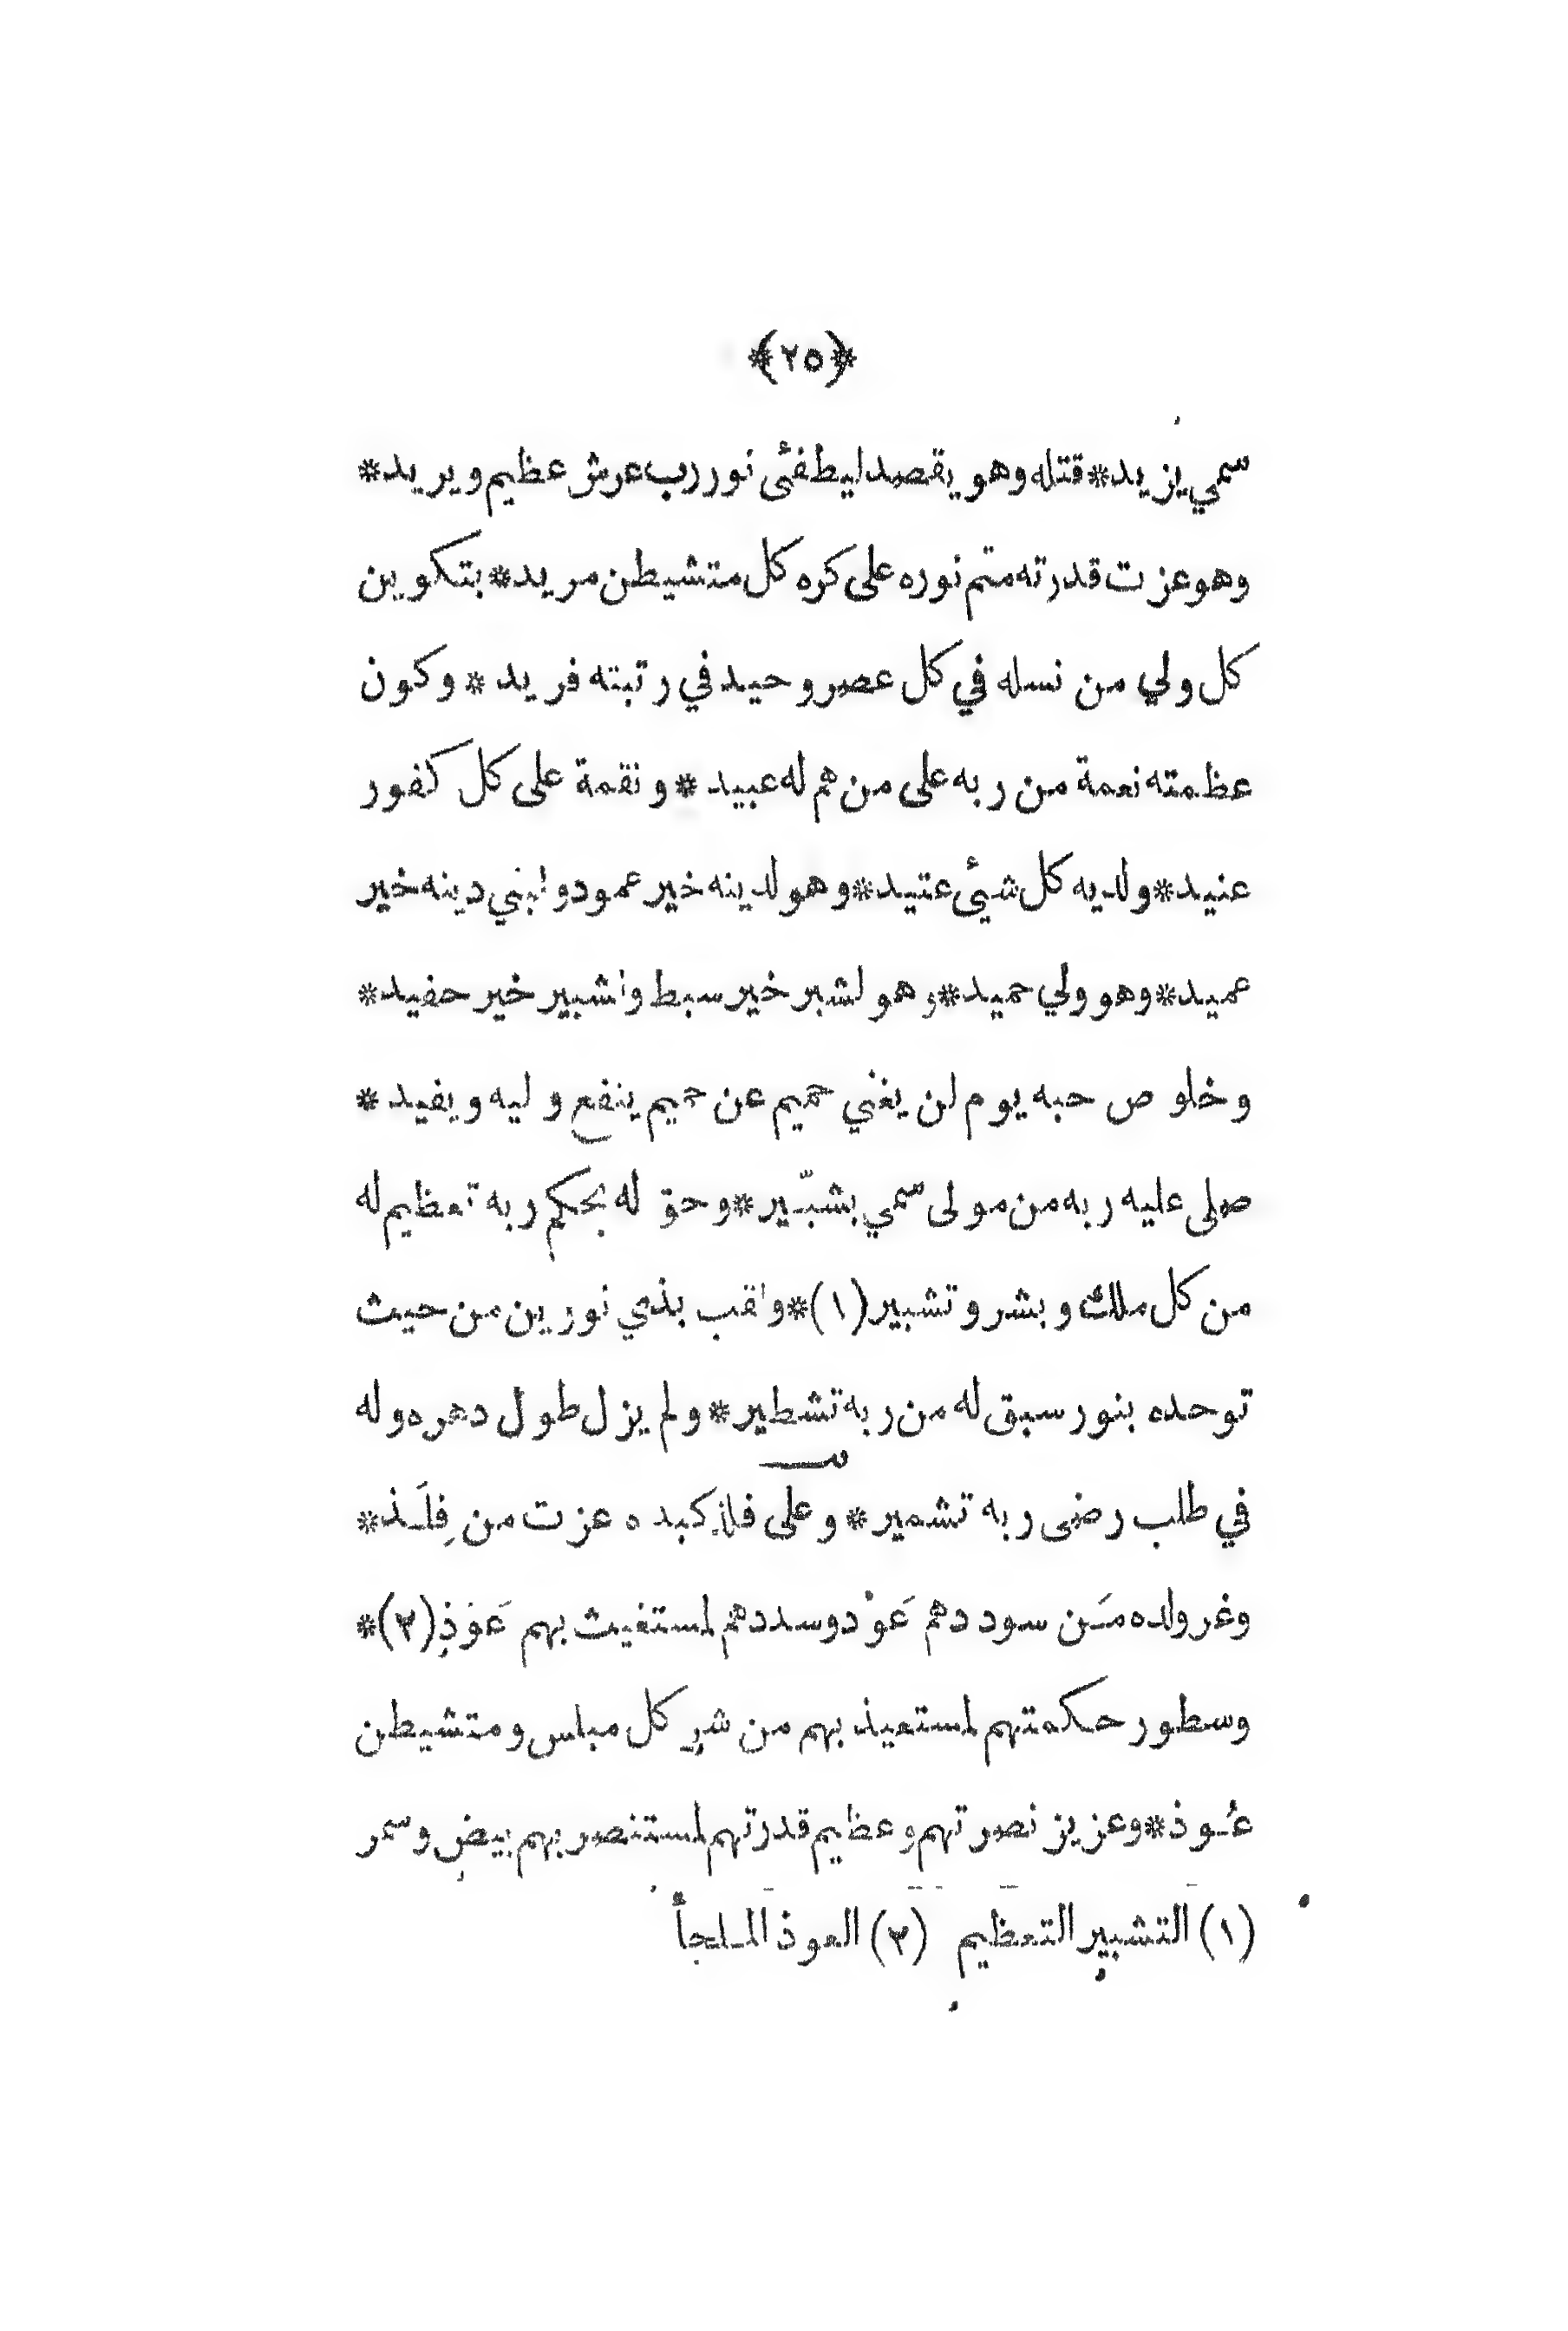 ﴿٢٥﴾
سمي يزيد * قتله وهو يقصد ليطفئ نور رب عرش عظيم ويريد *
وهو عزت قدرته متم نوره على كره كل متشيطن مريد * بتكوين
كل ولي من نسله في كل عصر وحيد في رتبته فريد * وكون
عظمته نعمة من ربه على من هم له عبيد * ونقمة على كل كفور
عنيد * ولديه كل شيئ عتيد * وهو لدينه خير عمود ولبني دينه خير
عميد * وهو ولي حميد * وهو لشبر خير سبط ولشبير خير حفيد *
وخلوص حبه يوم لن يغني حميم عن حميم ينفع وليه ويفيد *
صلى عليه ربه من مولى سمي بشبّير * وحق له بحكم ربه تعظيم له
من كل ملك وبشر وتشبير (١) * ولقب بذي نورين من حيث
توحده بنور سبق له من ربه تشطير * ولم يزل طول دهره وله
في طلب رضى ربه تشمير * وعلى فلذ كبده عزت من فِلَذ *
وغر ولده مَن سوددهم عَوْد وسددهم لمستغيث بهم عَوَذ (٢) *
وسطور حكمتهم لمستعيذ بهم من شر كل مبلس ومتشيطن
عُوذ * وعزيز نصرتهم وعظيم قدرتهم لمستنصر بهم بيض وسمر
(١) التشبير التعظيم (٢) العوذ الملجأ